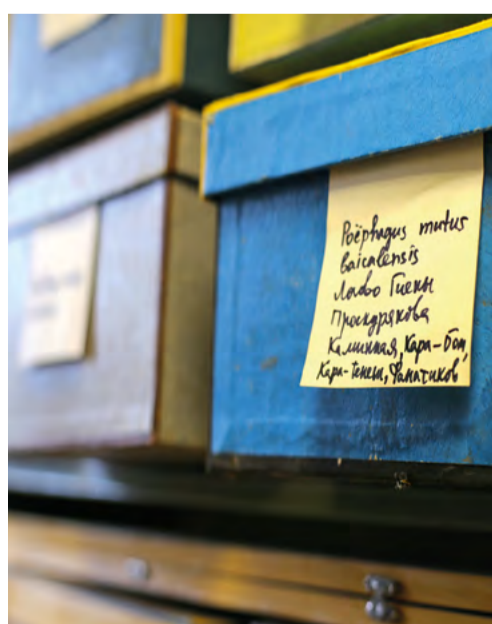 Poëphagus mutus
baicalensis
Логово Гиены
Проскурякова
Каминная, Кара-Бом,
Кара-Тенеш, Фанатиков